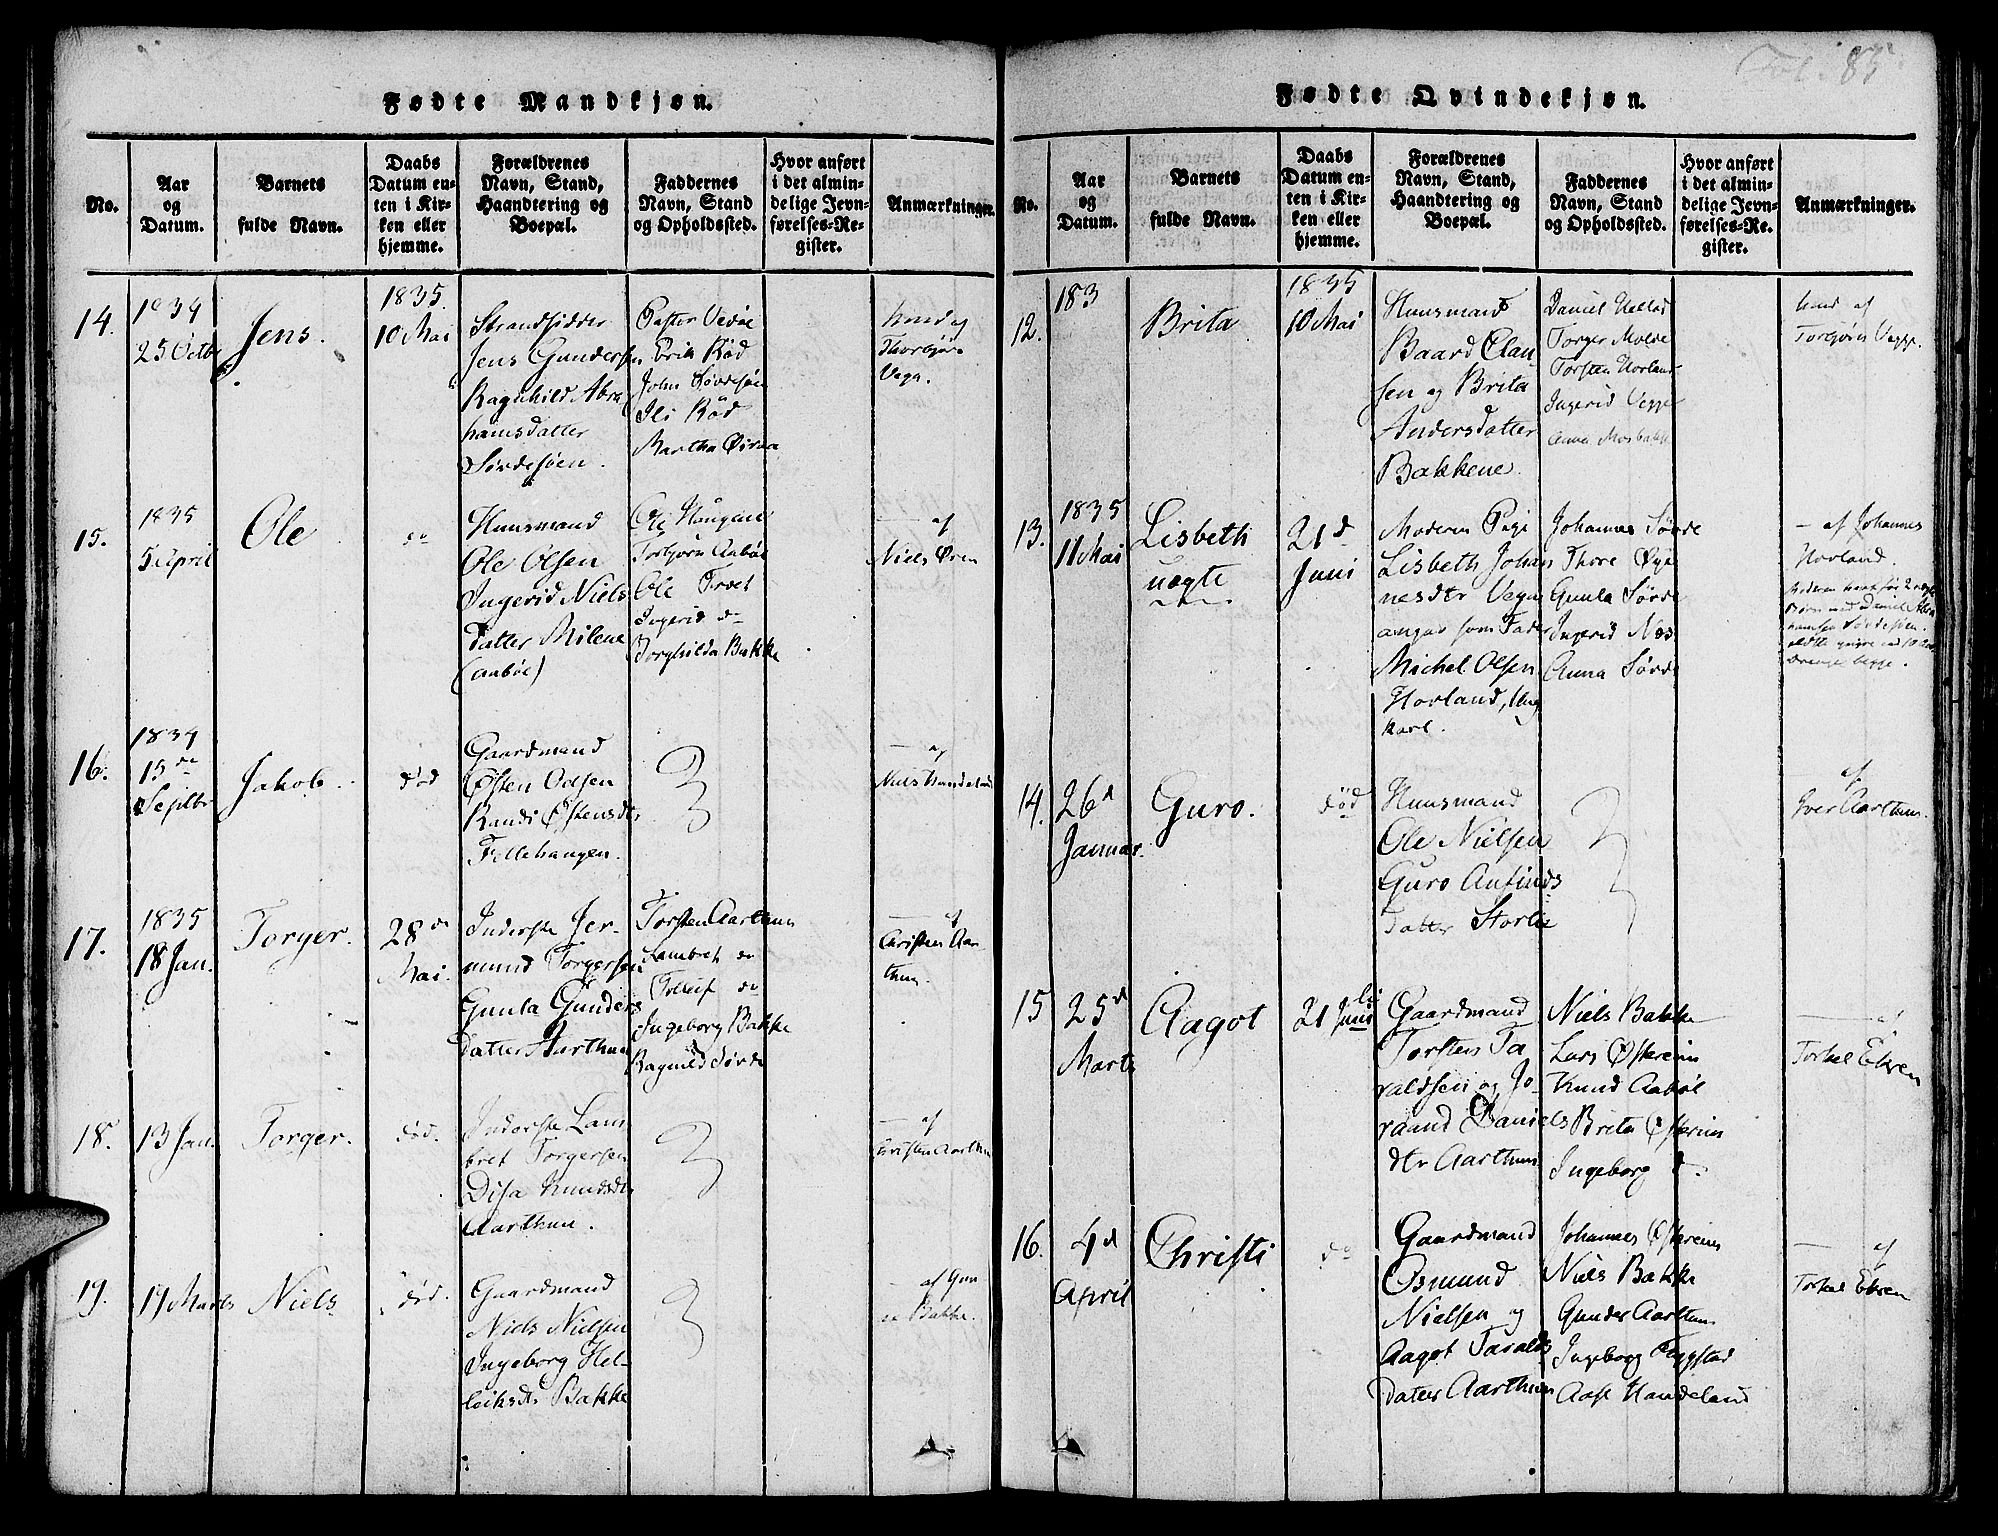 Fol. 85
Fødte Mandkjøn.
No.
Aar
og
Datum.
Barnets
fulde Navn.
Daabs
Datum en-
ten i Kir-
ken eller
hjemme.
Forældrenes
Navn, Stand,
Haandtering og
Boepæl.
Faddernes
Navn, Stand
og Opholdssted.
Hvor anført
i det almin-
delige Jevn-
førelses-Re-
gister.
Anmærkninger.
14.
1834
25 Octbr
Jens.
1835.
10 Mai
Strandsidder
Jens Gundersen
Ragnhild Abra
hamsdatter
Søvdesøen.
Peder Vedøe
Erik Rød
John Søvdesøen
Ili Rød
Martha
af
Thorbjørn
Vega.
15.
1835
5 April
Ole
do
Huusmand
Ole Olsen
Ingerid Niels
datter Milene
(aabøe)
Ole Haugen
Torbjørn Aabøe
Ole Tveet
Ingerid do
Borghilda Bakke
— af
Niels Øren
16.
1834
15de
Septbr
Jakob.
død
Gaardmand
Østen Odsen
Randi Østensdtr
Fellehaugen.
— af
Niels Handeland
17.
1835
18 Jan.
Torger.
28de
Mai.
Inderste Jer-
mund Torgersen
Gunla Gunders
datter Aarthun
Torsten Aarthun
Lambret do
Tolleif do
Ingeborg Bakke
Ragnild Søvde
— af
Christen Aar
thun.
18.
13 Jan.
Torger.
død.
Inderste Lam
bret Torgersen
Disa Knudsdtr
Aarthun.
— af
Christen Aarthun
19.
17 Marts
Niels
død.
Gaardmand
Niels Nielsen
Ingeborg Hel-
leiksdtr Bakke
— af Gun
ne Bakke.
Fødte Qvindekjøn.
No.
Aar
og
Datum.
Barnets
fulde Navn.
Daabs
Datum en-
ten i Kir-
ken eller
hjemme.
Forældrenes
Navn, Stand,
Haandtering og
Boepæl.
Faddernes
Navn, Stand
og Opholdssted.
Hvor anført
i det almin-
delige Jevn-
førelses-Re-
gister.
Anmærkninger.
12.
183
Brita
1835
10 Mai
Huusmand
Baard Clau
sen og Brita
Andersdatter
Bakkene.
Daniel
Torger Molde
Torsten Horland
Ingerid Vegge
Anna Mosbakk
af
Torbjørn Vegge.
13.
1835
11 Mai
Lisbeth
uægte
21d
Juni
Moderen Pige
Lisbeth Johan
nesdtr Vega
angav som Fader
Michel Olsen
Horland, Ung
karl.
Johannes Søvde
Thore Øye
Gunla Søvde
Ingerid Næs
Anna Søvde
— af Johannes
Horland.
Moderen havt før 2 uægte
Børn med Daniel Abra
hamsen Søvdesøen.
14.
26d
Januar.
Guro.
død
Huusmand
Ole Nielsen
Guro Anfinds
datter Storlie
af
Iver Aarthun.
15
25d
Marts
Aagot
21 Juni
Gaardmand
Torsten Ta
raldsen og Jo
raand Daniels
dtr Aarthun
Niels Bakke
Lars Østreim
Knud Aabøl
Brita Østreim
Ingeborg d.
— af
Torkel Ekren
16.
4d
April
Christi
do
Gaardmand
Osmund
Nielsen og
Aagot Taralds
datter Aarthun
Johannes Østreim
Niels Bakke
Gunder Aarthun
Ingeborg Fiygstad
Aase Handeland
— af
Torkel Ekren